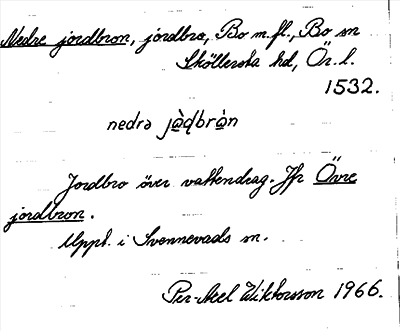 Nedre jordbron, jordbro, Bo m.fl., Bo sn
Sköllersta hd, Ör. l.
1532.
nedrə jɑ̀ɖbrɑ̀n
Jordbro över vattendrag. Jfr Övre
jordbron.
Uppt. i Svennevads sn.
Per-Axel Wiktorsson 1966.